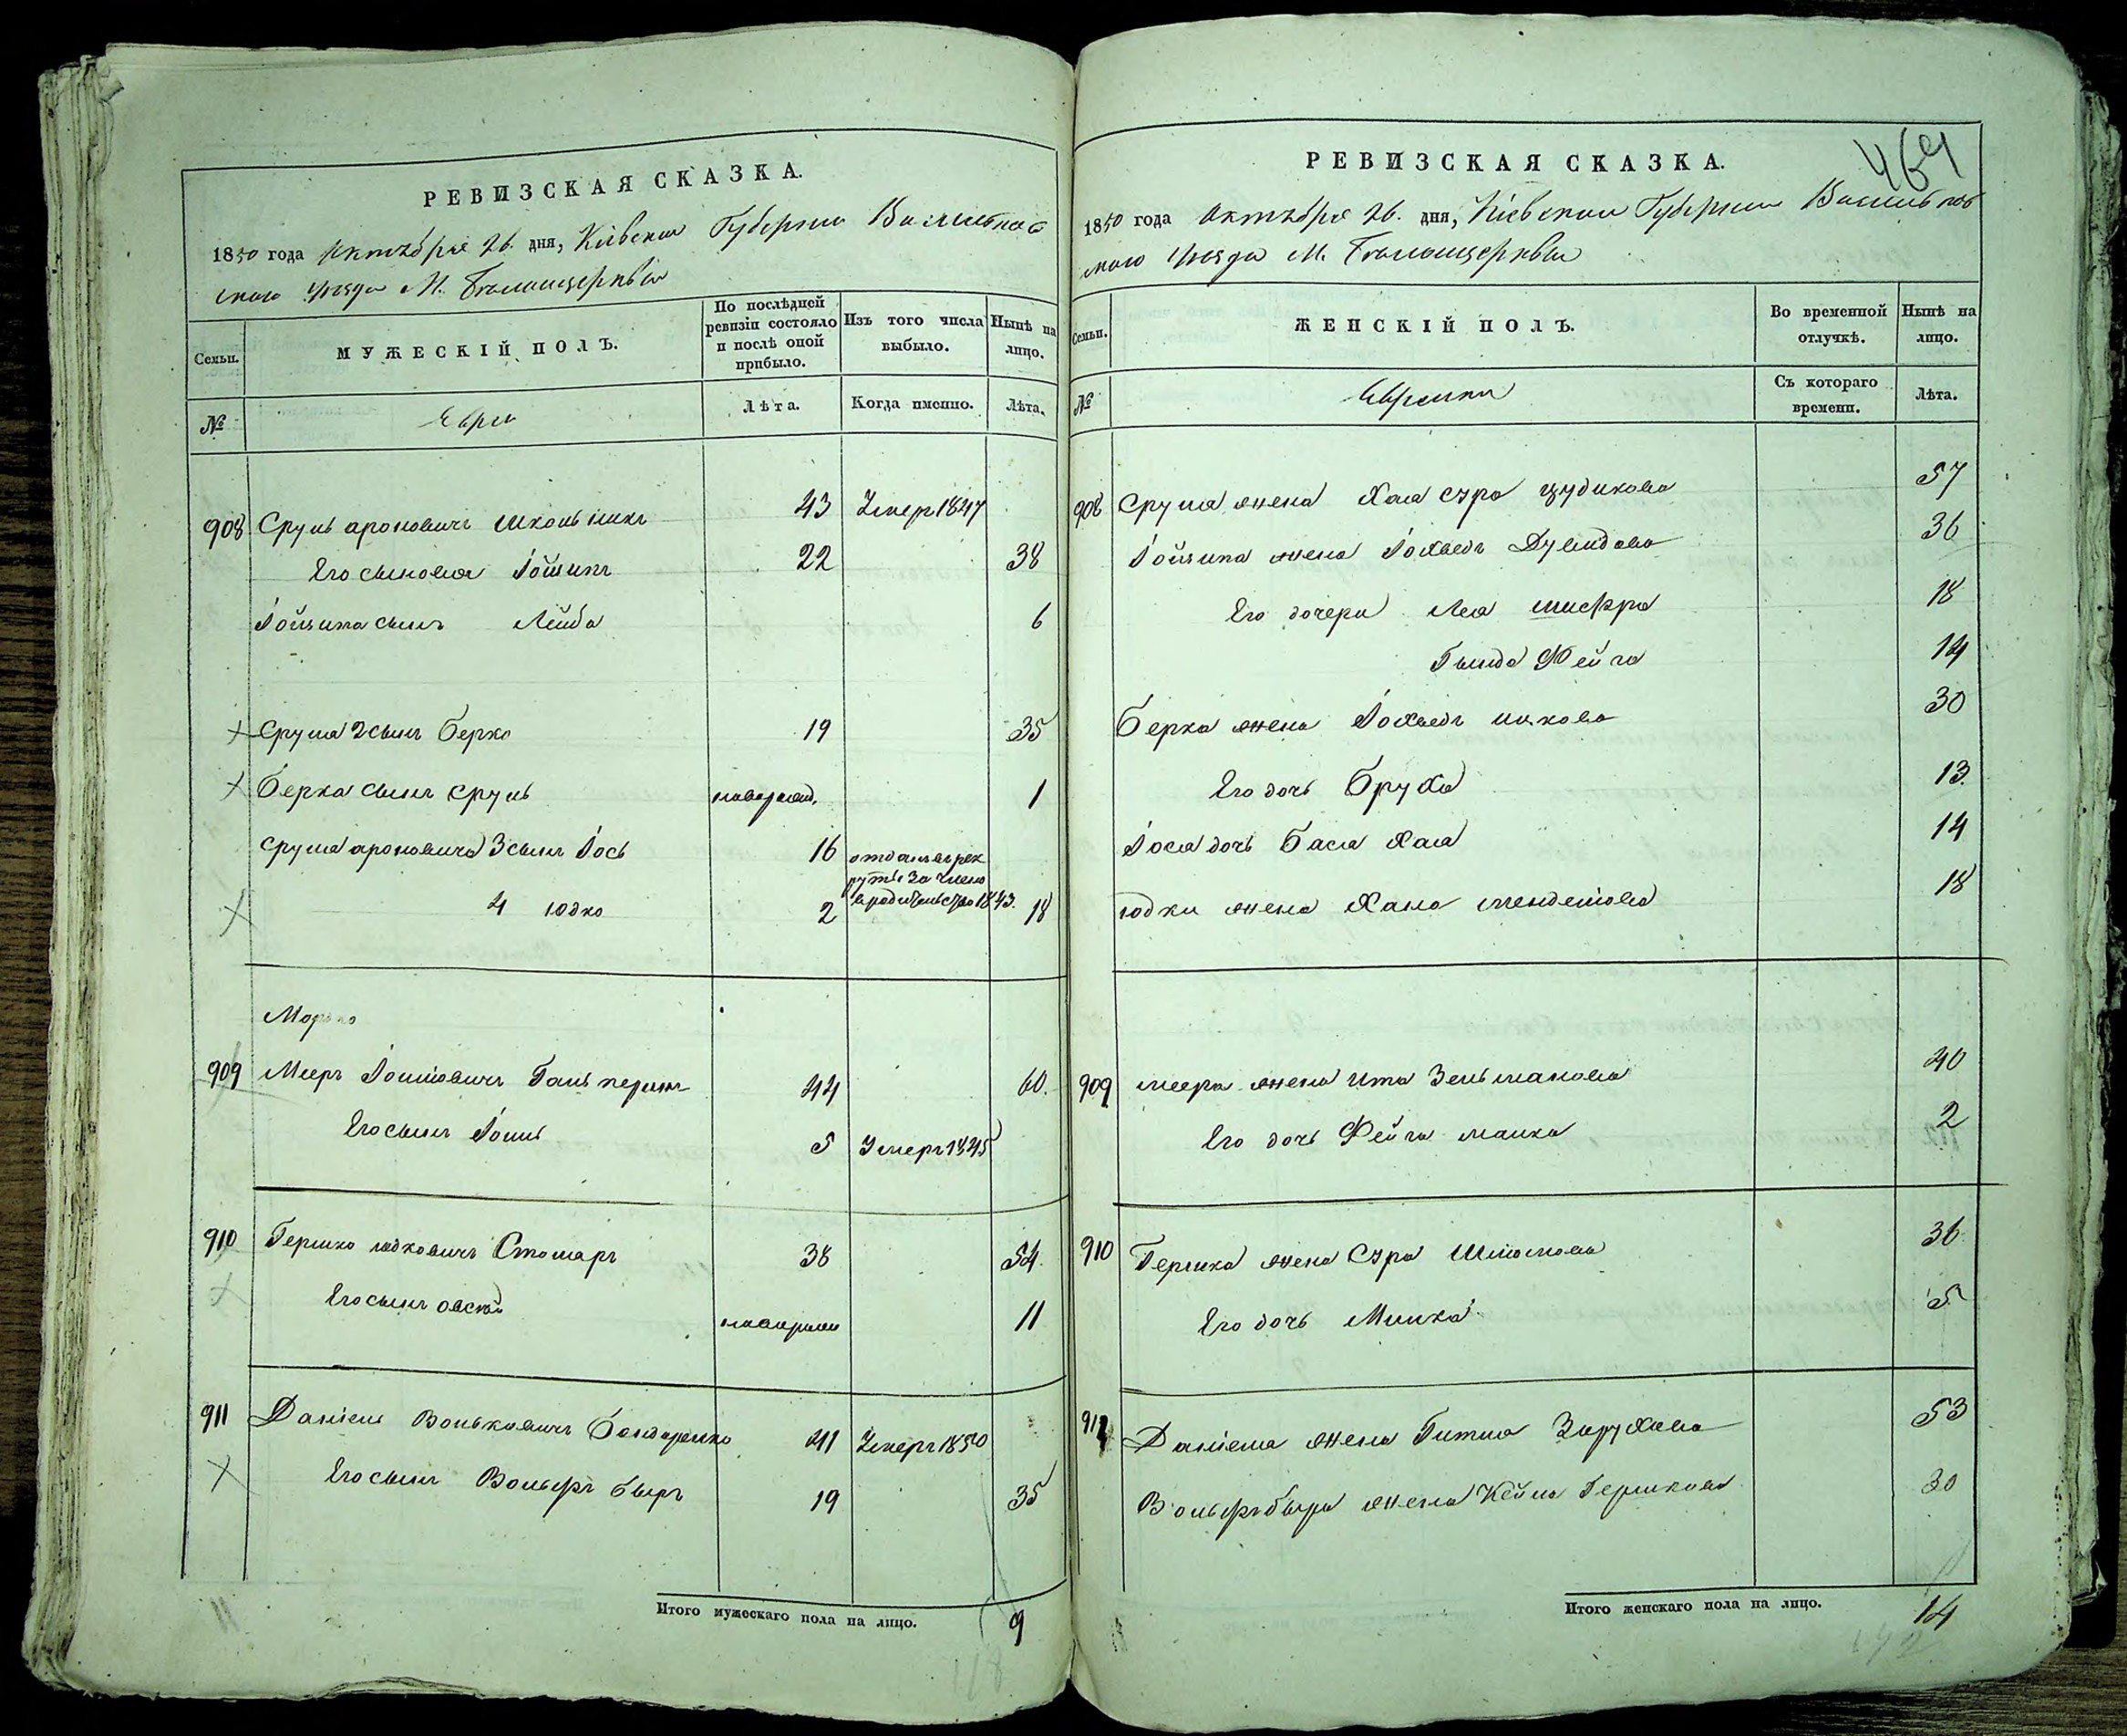 РЕВИЗСКАЯ СКАЗКА.
1850 года Октября 26. дня, Кіевской Губерніи Васильков
скаго Уезда М. Белоцерквы
Семьи.
МУЖЕСКІЙ ПОЛЪ.
По послѣдней ревизіи состояло и послѣ оной прибыло.
Изъ того числа выбыло.
Нынѣ на лицо.
№
Евреи
Лѣта.
Когда именно.
Лѣта.
908 Сруль ароновичъ школьникъ 43 Умер 1847
Его сыновья Іойшикъ 22 38
Іойшика сынъ Лейба 6
Сруля 2 сынъ Берко 19 35
Берка сынъ сруль новорожд. 1
сруля ароновича 3 сынъ Іось 16 отданъ врек
руты за
1843.
4 юдко 2 18
909 Мееръ Іошіовичъ Гальперинъ 44 60.
Его сынъ Іошь 5 Умеръ 1845
910 Гершко юдковичъ Столяръ 38 54.
Его сынъ овсій 11
911 Даніель Вольковичъ бондаренко 41 Умеръ 1850
Его сынъ Вольфъ беръ 19 35
Итого мужескаго пола на лицо. 9
469
РЕВИЗСКАЯ СКАЗКА.
1850 года Октября 26. дня, Кіевской Губерніи Васильков
скаго Уезда М. Белоцерквы
Семьи.
ЖЕНСКІЙ ПОЛЪ.
Во временной отлучкѣ.
Нынѣ на лицо.
№
Еврейки
Съ котораго времени.
Лѣта.
908 Сруля жена Хая сура цудикова 57
Іойшика жена Іохведъ Дувидова 36
Его дочери Лея шифра 18
Гинда Фейга 14
Берка жена Іохведъ ицкова 30
Его дочь Бруха 13.
Іося дочь Бася Хая 14
юдки жена Хана менделіова 18
909 меера жена ита Зельманова 40
Его дочь Фейга малка 2
910 Гершка жена Сура Шліомова 36
Его дочь Минка 5
911 Даніеля жена Гитля Зорухова 53
Вольфъ бера жена Кейла Гершкова 30
Итого женскаго пола на лицо. 14